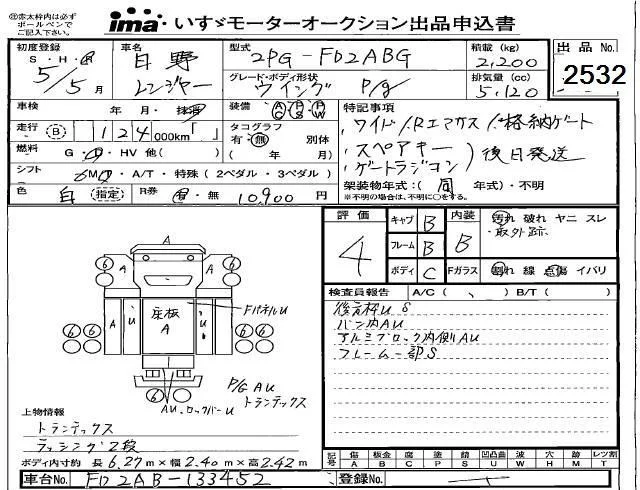 ※赤太枠内は必ず
ボールペンで
ご記入下さい。
ima いすゞモーターオークション出品申込書
出品No.
2532
初度登録
S・H・R
5/5月
車名
日野
レンジャー
型式
2PG-FD2ABG
グレード・ボディ形状
ウイング P/g
積載(kg)
2,200
排気量(cc)
5,120
車検
年・月・抹消
装備 AC PS PW
走行 B 124,000km
タコグラフ
有・無 別体
(年 月)
燃料 G・D・HV 他( )
シフト 6MQ・A/T・特殊(2ペダル・3ペダル)
色 白 指定 R券 有・無 10,900円
特記事項
・ワイド/Rエアサス/格納ゲート
・スペアキー
・ゲートリジコン)後日発送
架装物年式:(同 年式)・不明
※不明の場合は、不明に○をする。
評価
4
キャブ B
フレーム B
ボディ C
内装 B
汚れ 破れ ヤニ スレ
・取外跡
Fガラス 割れ 線 点傷 イバリ
検査員報告 A/C( 、 ) B/T( )
後言枠U S
バン内AU
アルミブロック内側AU
フレーム一部S
A
A
A
A
U
U
座板
A
FパネルU
6
6
6
6
6
6
6
P/G AU
トランテックス
AU、ロックバーU
上物情報
トランテックス
ラッシング2段
ボディ内寸約 長6.27m×幅2.40m×高2.42m
記号
傷 板金 腐 塗 錆 凹凸曲 波 穴 跡 レンズ割
A B C P S U W H M T
車台No. FD2AB-133452
登録No.